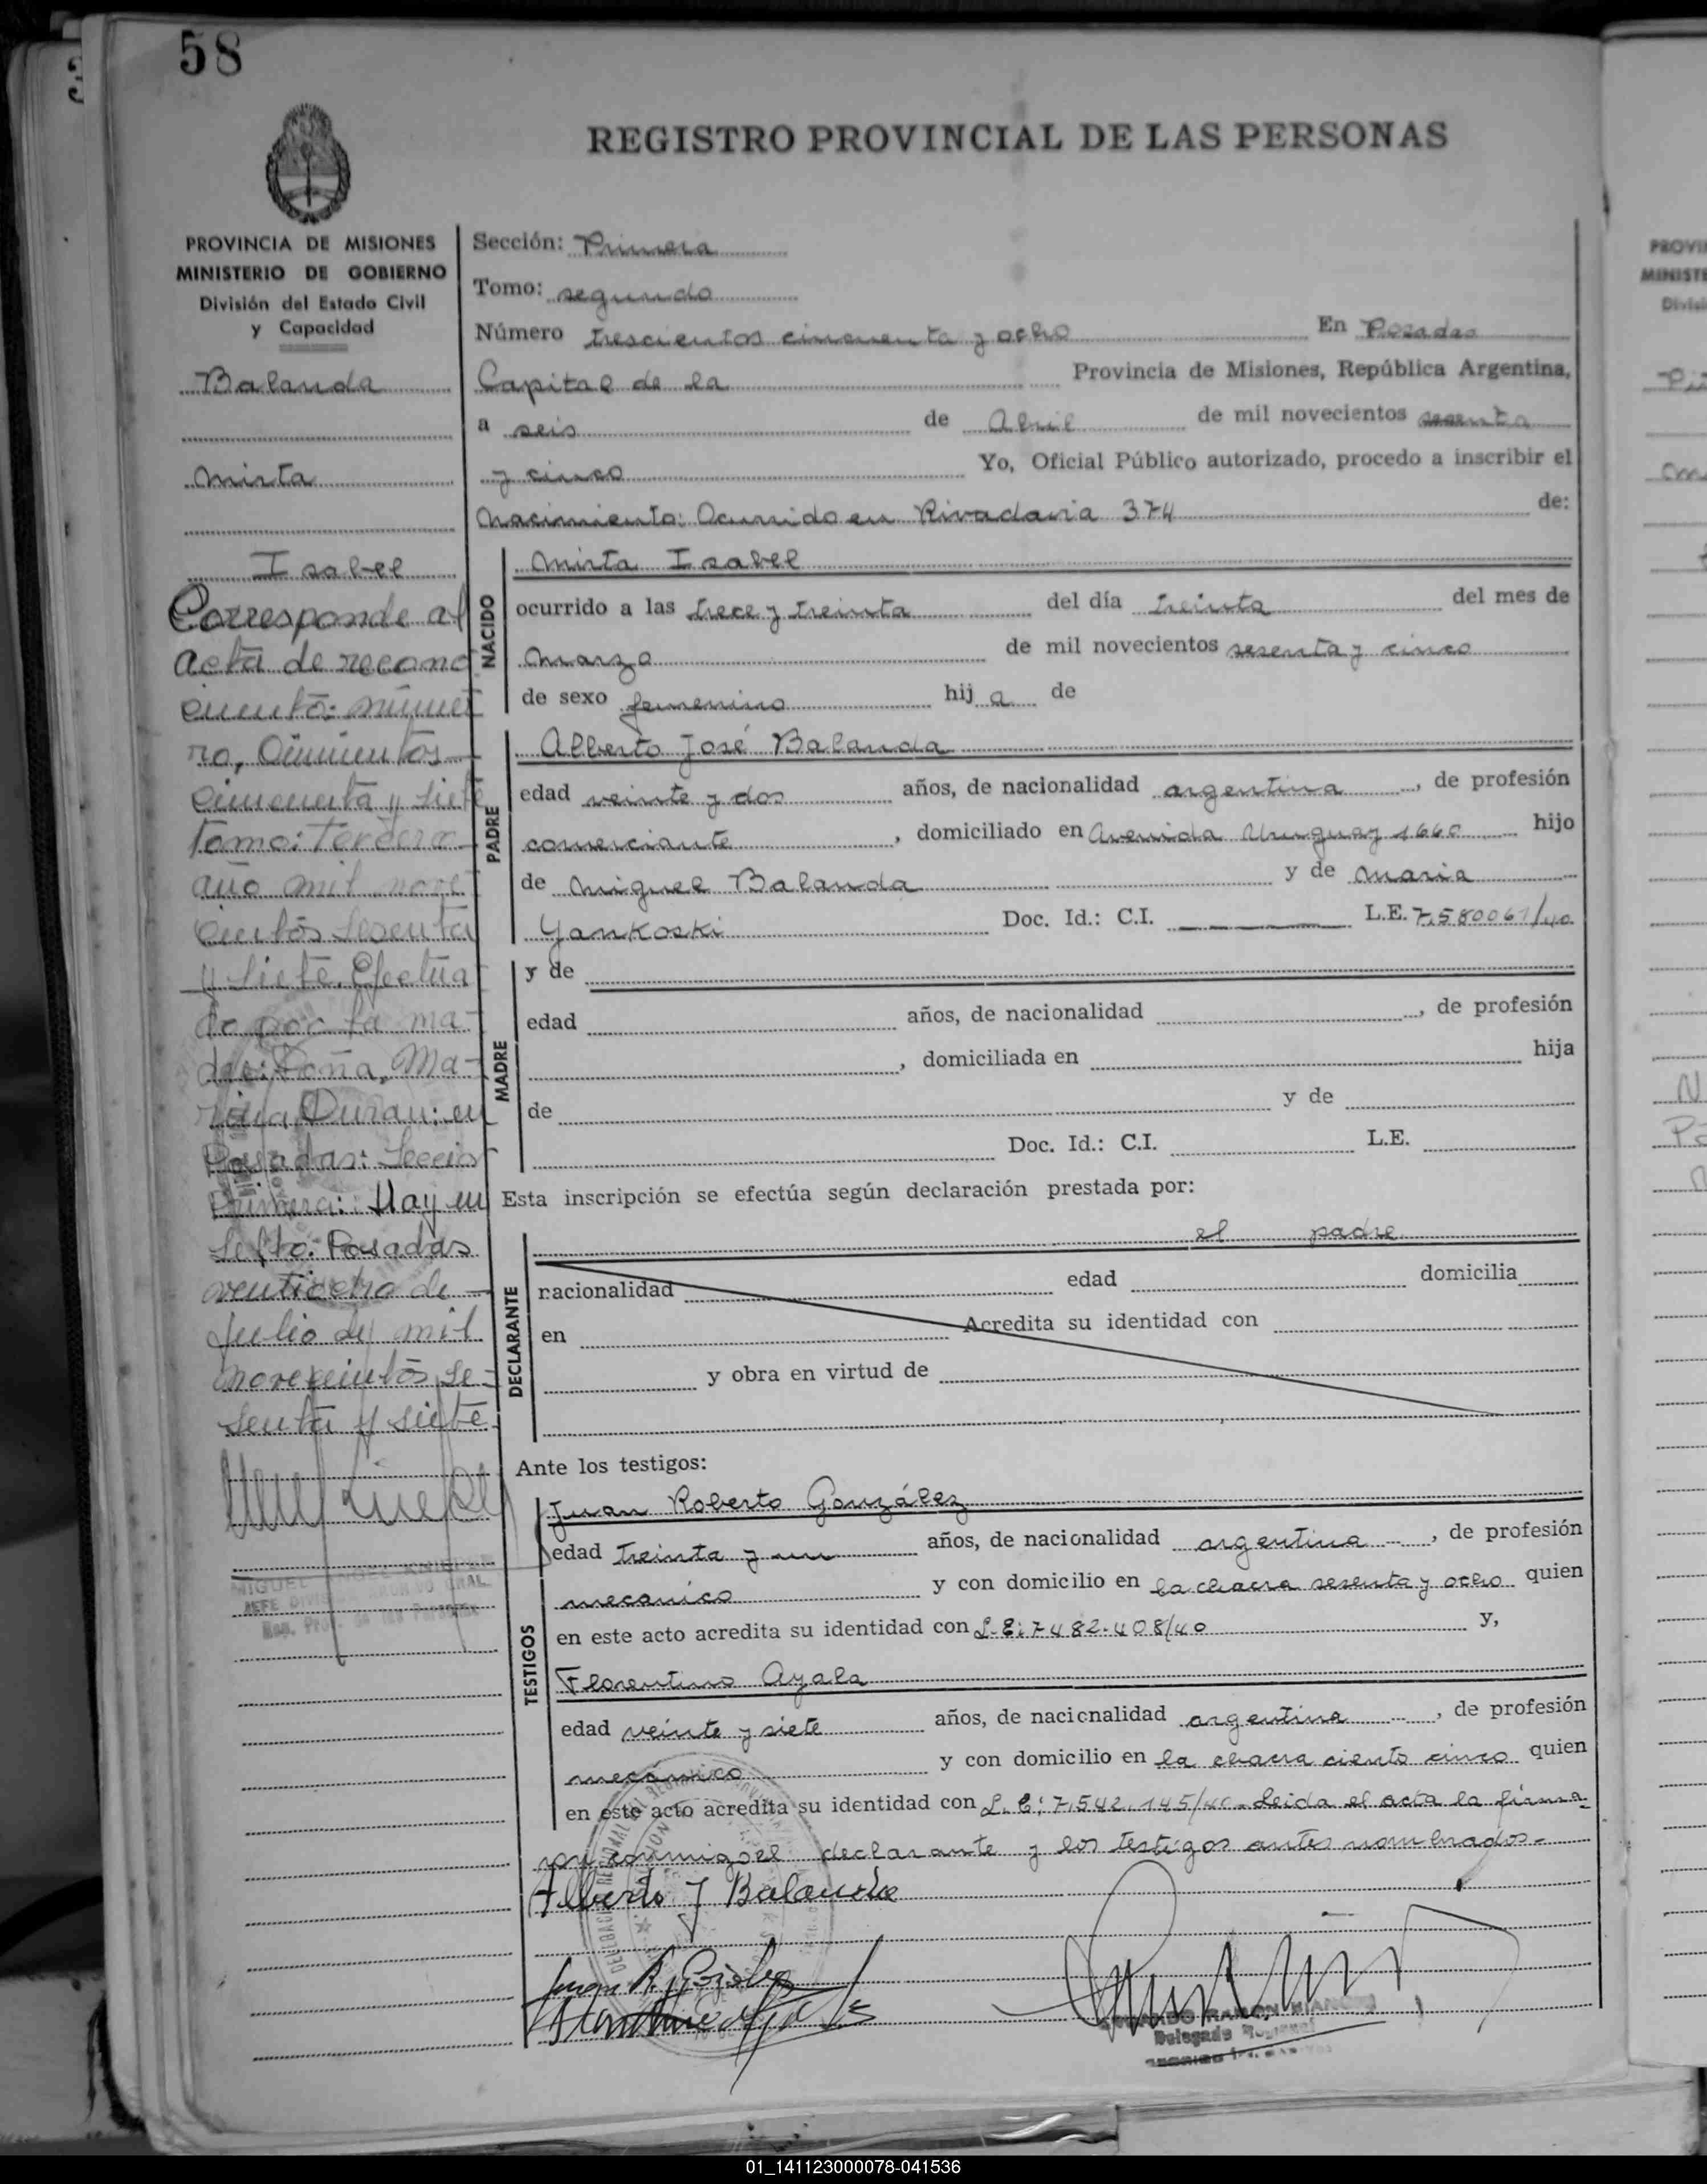 58
REGISTRO PROVINCIAL DE LAS PERSONAS
PROVINCIA DE MISIONES
MINISTERIO DE GOBIERNO
División del Estado Civil
y Capacidad
Balanda
Mirta
Isabel
Corresponde al
acta de recono
cimiento: núme
ro, Quinientos
cincuenta y siete
tomo: tercero
año mil nove
cientos sesenta
y siete. Efectua
do por la ma-
dre: Doña, Ma-
Duran: en
Posadas: Seccio
Primera: Hay un
Posadas
veintiocho de
Julio de mil
novecientos se-
senta y siete
MIGUEL ANGEL
JEFE DIVISION ARCHIVO GRAL.
Reg. Prov. de las Personas
Sección: Primera
Tomo: segundo
Número trescientos cincuenta y ocho En Posadas
Capital de la Provincia de Misiones, República Argentina,
a seis de Abril de mil novecientos sesenta
y cinco Yo, Oficial Público autorizado, procedo a inscribir el
Nacimiento: Ocurrido en Rivadavia 374 de:
NACIDO
Mirta Isabel
ocurrido a las trece y treinta del día treinta del mes de
Marzo de mil novecientos sesenta y cinco
de sexo femenino hij a de
PADRE
Alberto José Balanda
edad veinte y dos años, de nacionalidad argentina, de profesión
comerciante, domiciliado en Avenida Uruguay 1660 hijo
de Miguel Balanda y de Maria
Yankoski Doc. Id.: C.I. L.E. 7,580061/40
MADRE
y de
edad años, de nacionalidad , de profesión
, domiciliada en hija
de y de
Doc. Id.: C.I. L.E.
Esta inscripción se efectúa según declaración prestada por:
DECLARANTE
el padre
nacionalidad edad domicilia
en Acredita su identidad con
y obra en virtud de
Ante los testigos:
TESTIGOS
Juan Roberto González
edad treinta y un años, de nacionalidad argentina, de profesión
mecanico y con domicilio en la chacra sesenta y ocho quien
en este acto acredita su identidad con L.E: 7.482.408/40 y,
Florentino Ayala
edad veinte y siete años, de nacionalidad argentina, de profesión
mecánico y con domicilio en la chacra ciento cinco quien
en este acto acredita su identidad con L.E: 7,542.145/40. Leida el acta la firma-
ron conmigo el declarante y los testigos antes nombrados.-
Alberto J Balanda
RAMON
Delegado Regional
01_141123000078-041536